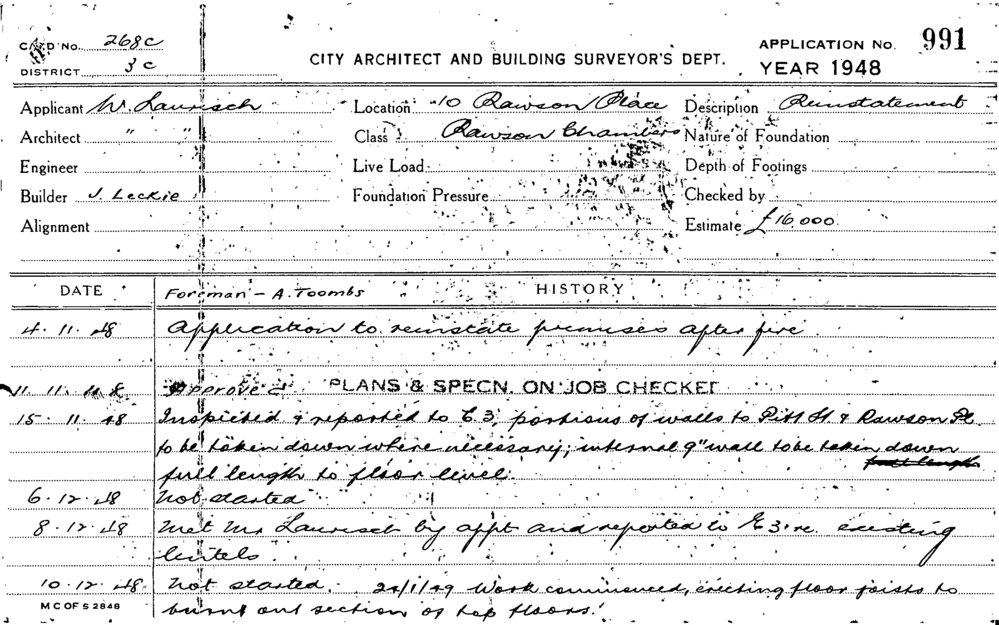 CARD No. 268c
DISTRICT 3c
CITY ARCHITECT AND BUILDING SURVEYOR'S DEPT.
APPLICATION No. 991
YEAR 1948
Applicant W. Laurisch Location 10 Rawson Place Description Reinstatement
Architect " " Class Rawson Chambers Nature of Foundation
Engineer Live Load Depth of Footings
Builder J. Leckie Foundation Pressure Checked by
Alignment Estimate £16,000.
DATE Foreman - A. Toombs HISTORY
4.11.48 Application to reinstate premises after fire
11.11.48 Approved PLANS & SPECN. ON JOB CHECKED
15.11.48 Inspected & reported to E3, portions of walls to Pitt St. & Rawson Pl.
to be taken down where necessary; internal 9" wall to be taken down
full length
full length to floor level.
6.12.48 Not started
8.12.48 Met Mr Laurisch by appt and reported to E3 re. existing
lintels
10.12.48. Not started. 24/1/49 Work commenced, erecting floor joists to
MC OF S 2848 burnt out section of top floors.